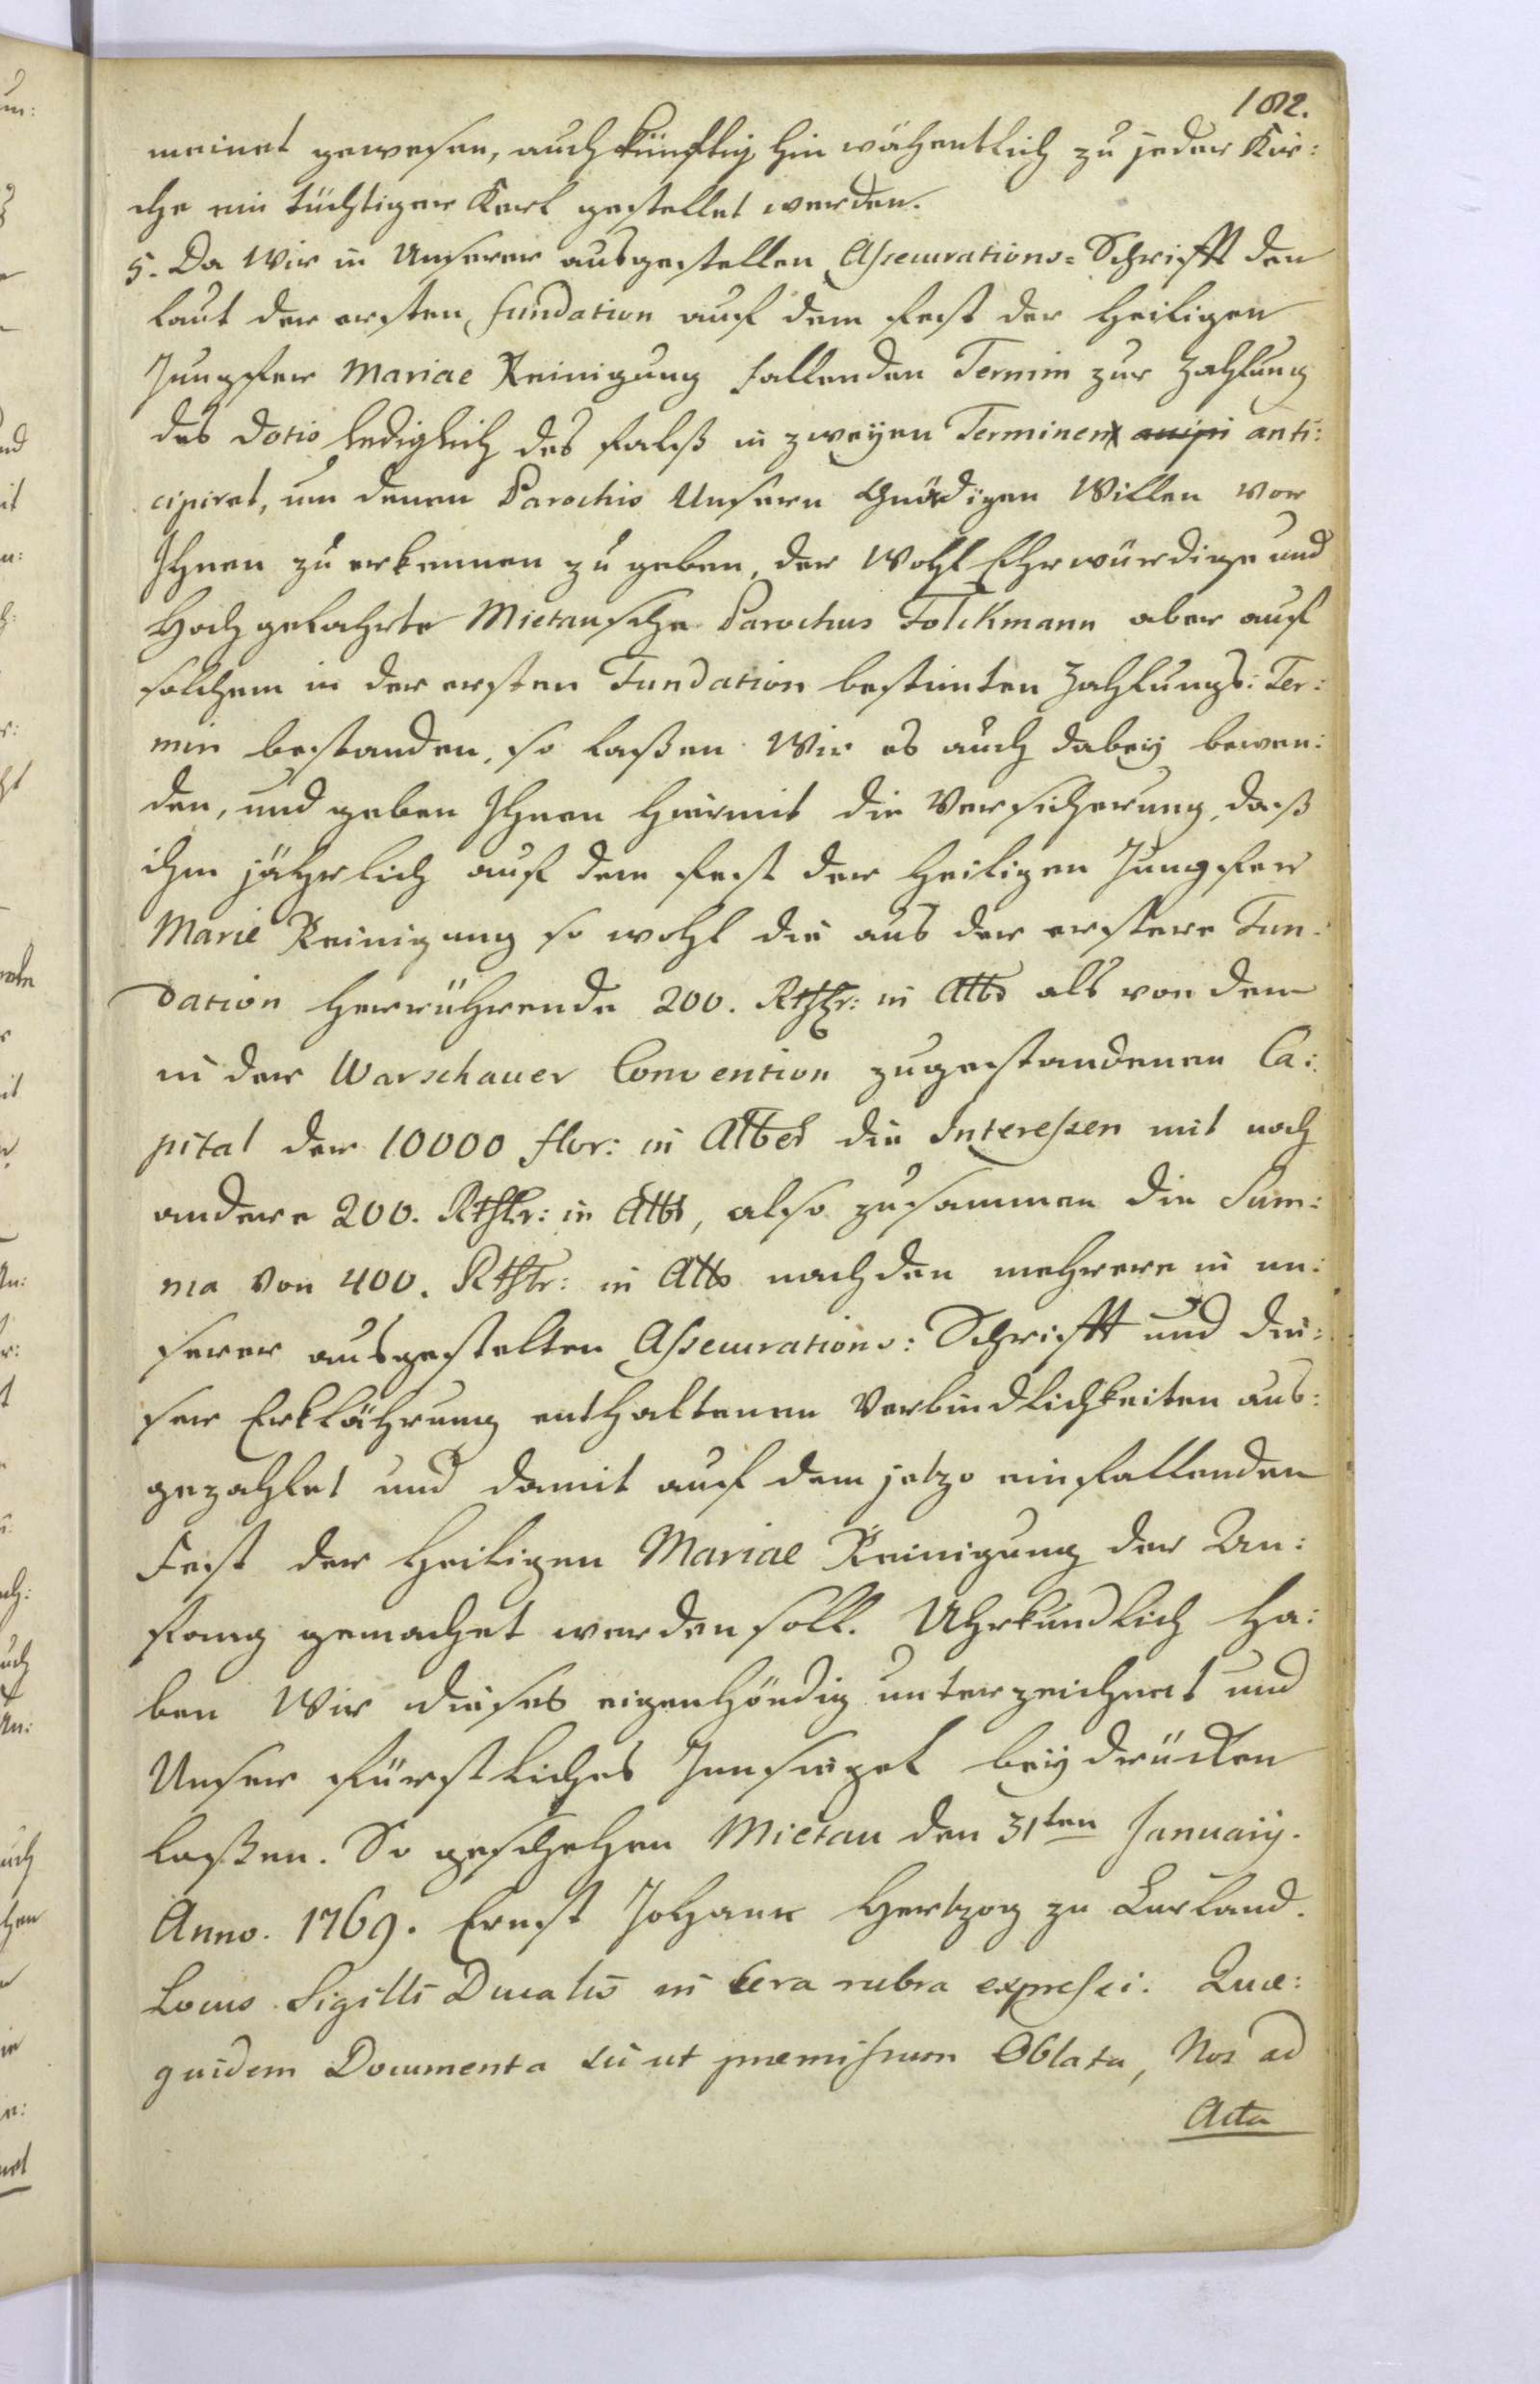 182.
meinet gewesen, auch künftig hin wöhentlich zu jeder Kir:
che ein tüchtiger Kerl gestellet werden.
5. Da Wir in Unserer ausgestellen Assecurations=Schrifft den
laut der ersten fundation auf dem Fest der Heiligen
Jungfer Mariae Reinigung fallenden Termin zur Zahlung
des Dotis lediglich des falß in zweyen Terminen anti:
cipiret, um denen Parochis Unsern Gnädigen Willen vor
Ihnen zu erkennen zu geben, der Wohl Ehrwürdige und
Hochgelahrte Mietausche Parochus Folckmann aber auf
solchem in der ersten Fundation bestimten Zahlungs: Ter:
min bestanden, so laßen Wir es auch dabey bewen:
den, und geben Ihnen hiermit die Versicherung, daß
ihm jährlich auf dem Fest der Heiligen Jungfer
Marië Reinigung so wohl die aus der erstere Fun:
dation herrührende 200. Rthlr: in Albs als von dem
in der Warschauer Convention zugestandenen Ca:
pital der 10000 flor: in Albes die Interessen mit noch
andere 200. Rthlr: in Albs, also zusammen die Sum:
ma von 400. Rthlr: in Albs nach den mehrere in un:
serer ausgestelten Assecurations: Schrifft und die:
ser Erklährung enthaltenen Verbindlichkeiten aus:
gezahlet und damit auf dem jetzo einfallenden
Fest der Heiligen Mariae Reinigung der An:
fang gemachet werden soll. Uhrkundlich ha:
ben Wir dieses eigenhändig unterzeichnet und
Unser Fürstliches Innsiegel beydrücken
laßen. So geschehen Mietau den 31ten Januarij.
Anno. 1769. Ernst Johann Hertzog zu Curland.
Locus Sigilli Ducalis in Cera rubra expressi. Quæ:
quidem Documenta sic ut præmissum Oblata, Nos ad
Acta